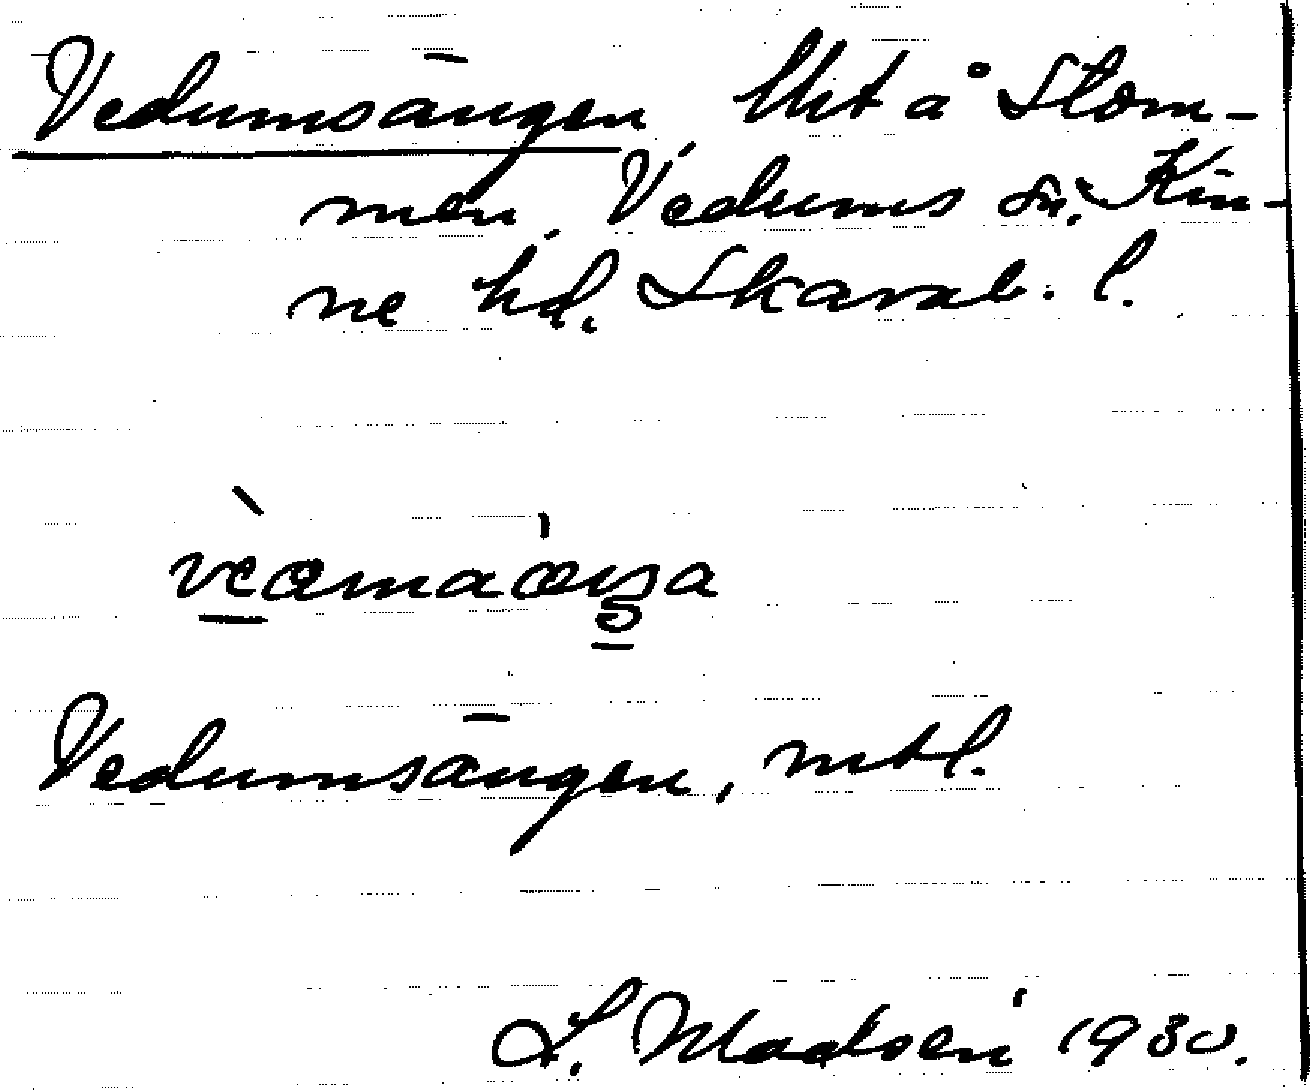 Vedumsängen, Utt å Stom-
men, Vedums sn, Kin-
ne hd. Skarab. l.
Vedumsängen, mtl.
L. Madsén 1930.